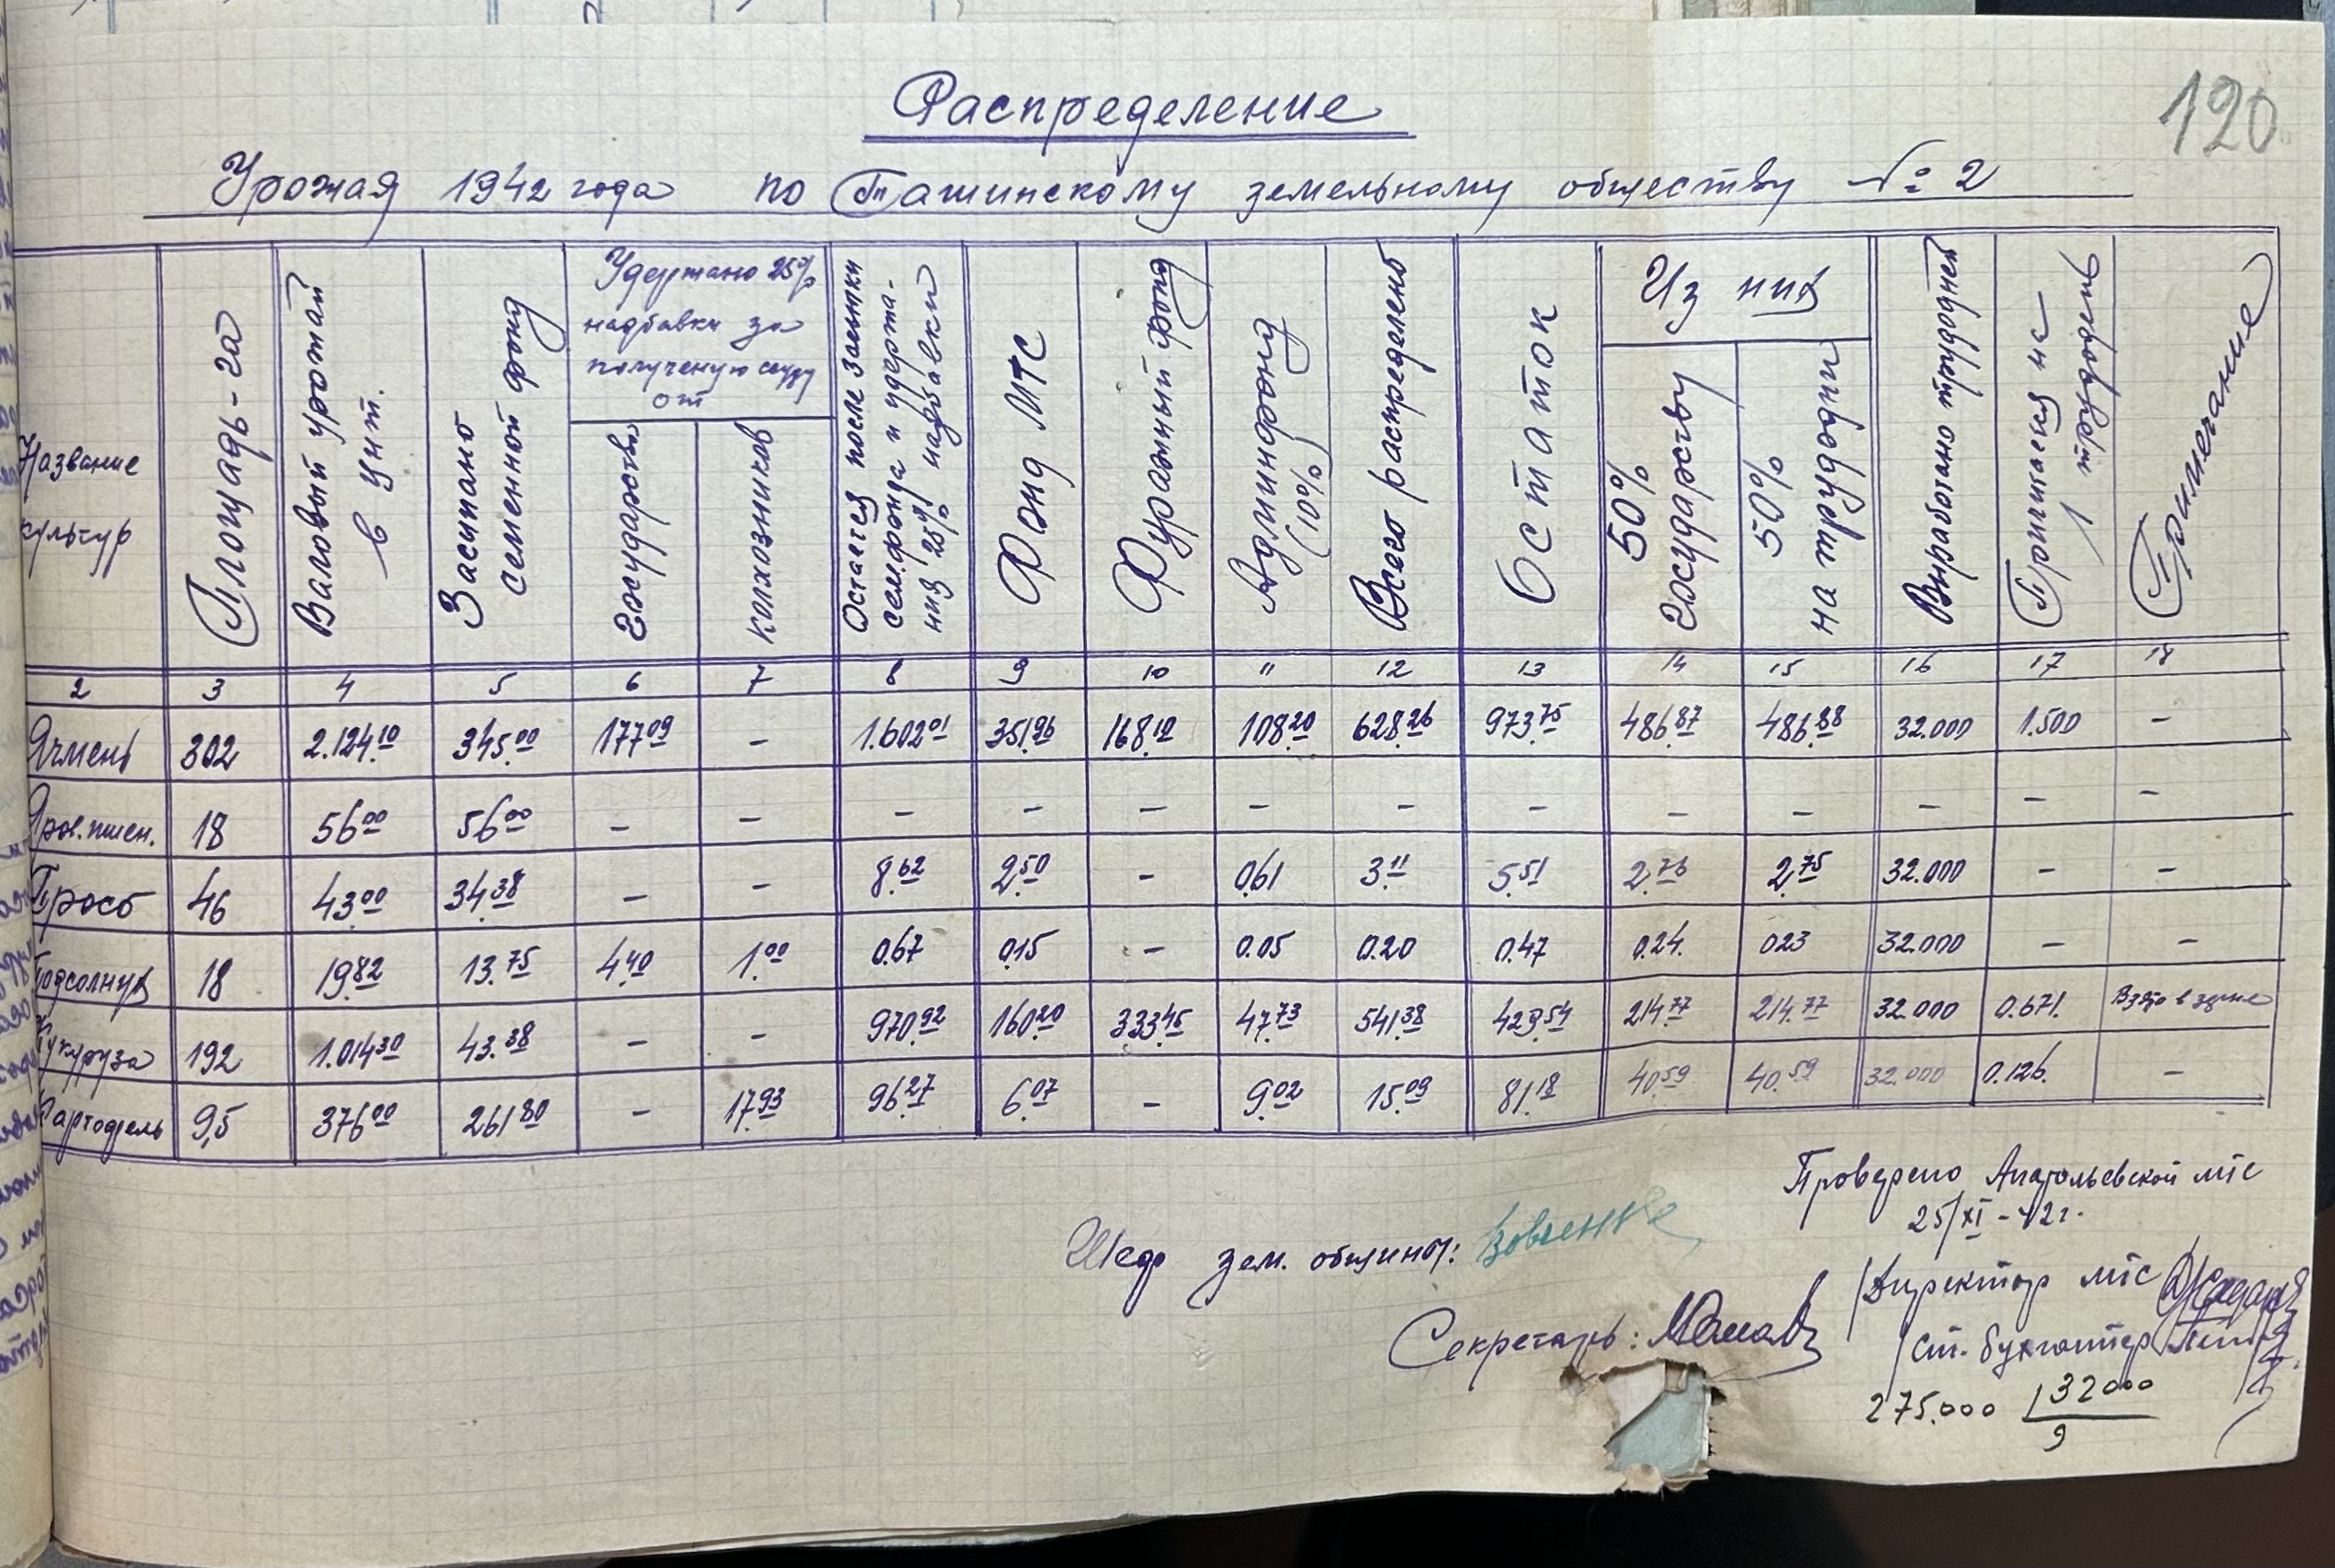 120
Распределение
Урожая 1942 года по Ташинскому земельному обществу № 2
Название культур | Площадь-га | Валовый урожай в цнт. | Засыпано семенной фонд | Удержано 25% надбавки за полученую ссуду от | государства | колхозников | Остается после засыпки семфонда и удержания 25% надбавки | Фонд МТС | Фуражный фонд | Админфонд (10%) | Всего распределено | Остаток | Из них | 50% государству | 50% на трудодни | Выработано трудодней | Причитается на 1 трудодень | Примечание
2 | 3 | 4 | 5 | 6 | 7 | 8 | 9 | 10 | 11 | 12 | 13 | 14 | 15 | 16 | 17 | 18
Ячмень | 302 | 2.124.10 | 345.00 | 177.09 | - | 1.602.01 | 351.96 | 168.10 | 108.20 | 628.26 | 973.75 | 486.87 | 486.88 | 32.000 | 1.500 | -
Яров. пшен. | 18 | 56.00 | 56.00 | - | - | - | - | - | - | - | - | - | - | - | - | -
Просо | 46 | 43.00 | 34.38 | - | - | 8.62 | 2.50 | - | 0.61 | 3.11 | 5.51 | 2.76 | 2.75 | 32.000 | - | -
Подсолнух | 18 | 19.82 | 13.75 | 4.40 | 1.00 | 0.67 | 0.15 | - | 0.05 | 0.20 | 0.47 | 0.24. | 023 | 32.000 | - | -
Кукуруза | 192 | 1.014.30 | 43.38 | - | - | 970.92 | 160.20 | 333.45 | 47.73 | 541.38 | 429.54 | 214.77 | 214.77 | 32.000 | 0.671. | Взято в зерне
Картофель | 9,5 | 376.00 | 261.80 | - | 17.93 | 96.27 | 6.07 | - | 9.02 | 15.09 | 81.18 | 40.59 | 40.59 | 32.000 | 0.126. | -
Проверено Анатольевской мтс
25/XI-42г.
Шеф зем. общины:
Директор мтс
Секретарь:
Ст. бухгалтер
275.000 | 32000
9